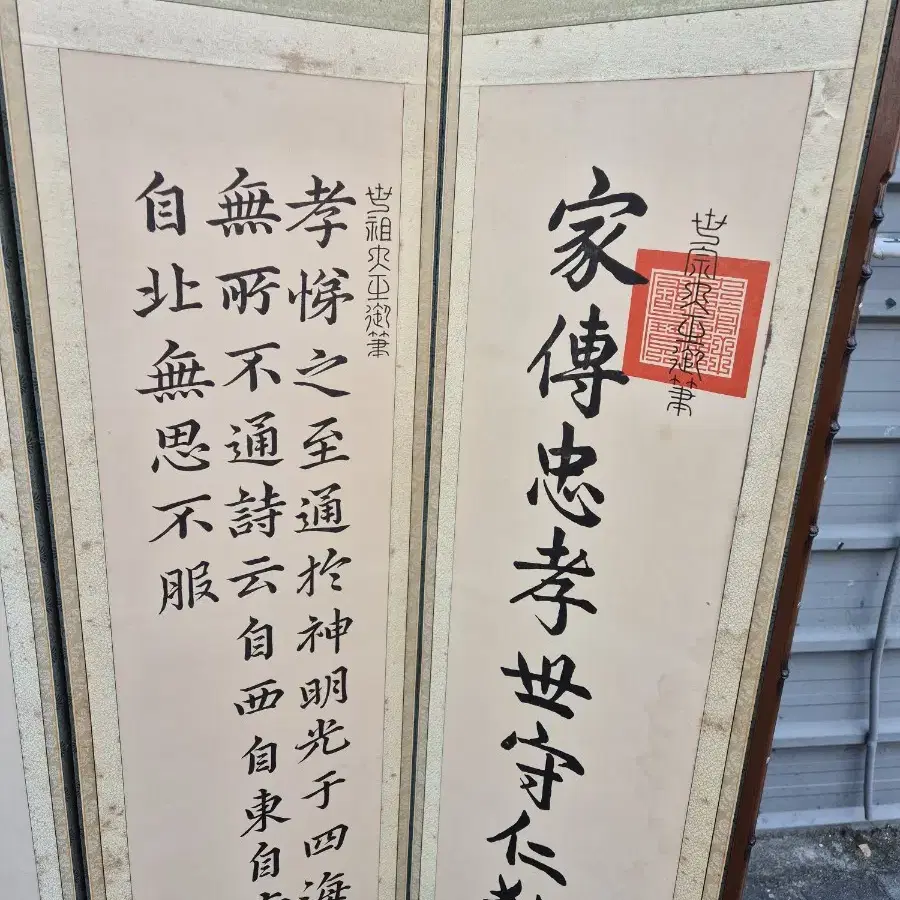 世宗大王御筆
家傳忠孝世守仁
世祖大王御筆
孝悌之至通於神明光于四海
無所不通詩云自西自東自
自北無思不服